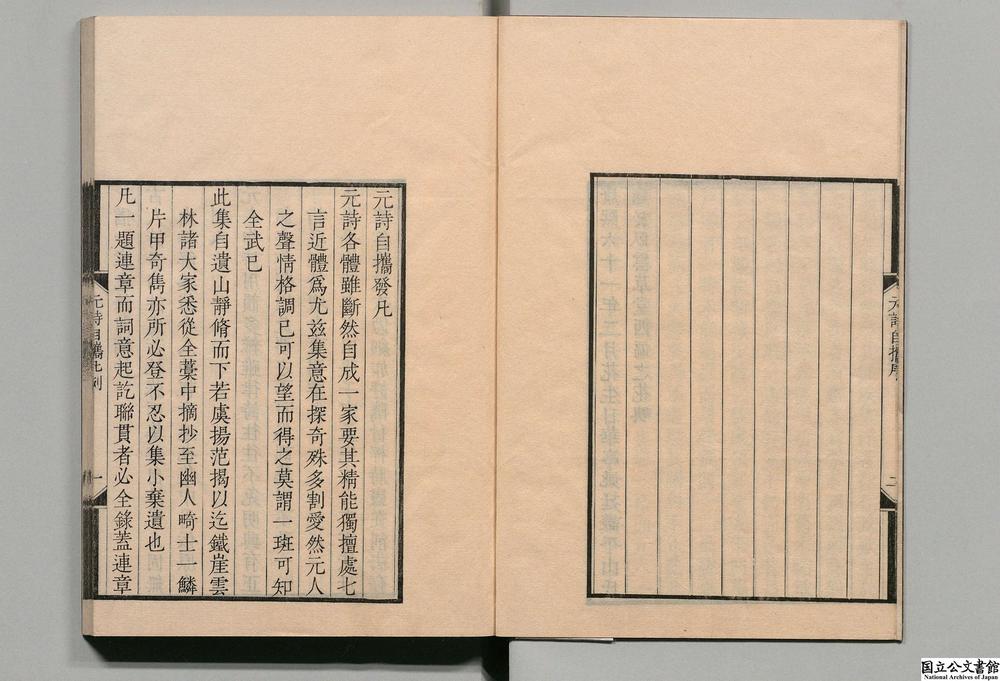 元詩自攜序
二
元詩自攜發凡
元詩各體雖斷然自成一家要其精能獨擅處七
言近體爲尤兹集意在探奇殊多割愛然元人
之聲情格調已可以望而得之莫謂一斑可知
全武已
此集自遺山靜脩而下若虞揚范揭以迄鐵崖雲
林諸大家悉從全藁中摘抄至幽人畸士一鱗
片甲奇雋亦所必登不忍以集小棄遺也
凡一題連章而詞意起訖聯貫者必全錄蓋連章
元詩自攜凡例
一
国立公文書館
National Archives of Japan